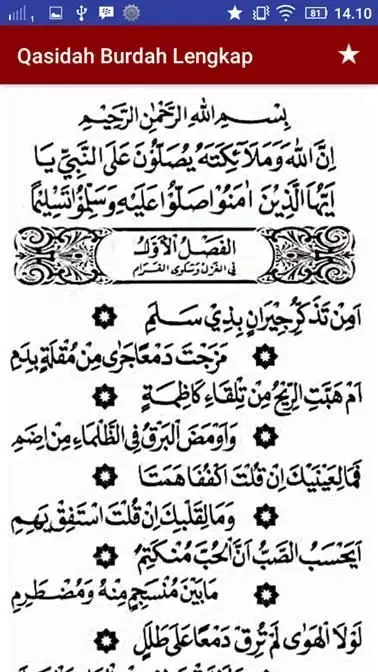 1 81 14.10
Qasidah Burdah Lengkap
بِسْمِ اللهِ الرَّحْمٰنِ الرَّحِيْمِ
اِنَّ اللهَ وَمَلَآئِكَتَهُ يُصَلُّوْنَ عَلَى النَّبِيِّ يَا
اَيُّهَا الَّذِيْنَ اٰمَنُوْا صَلُّوْا عَلَيْهِ وَسَلِّمُوْا تَسْلِيْمًا
الفَصْلُ الْاَوَّلُ
فِي الغَزَلِ وَشَكْوَى الغَرَامِ
اَمِنْ تَذَكُّرِ جِيْرَانٍ بِذِيْ سَلَمِ
مَزَجْتَ دَمْعًا جَرٰى مِنْ مُقْلَةٍ بِدَمِ
اَمْ هَبَّتِ الرِّيْحُ مِنْ تِلْقَاءِ كَاظِمَةٍ
وَاَوْمَضَ الْبَرْقُ فِي الظَّلْمَاءِ مِنْ اِضَمِ
فَمَا لِعَيْنَيْكَ اِنْ قُلْتَ اكْفُفَا هَمَتَا
وَمَا لِقَلْبِكَ اِنْ قُلْتَ اسْتَفِقْ يَهِمِ
اَيَحْسَبُ الصَّبُّ اَنَّ الْحُبَّ مُنْكَتِمٌ
مَا بَيْنَ مُنْسَجِمٍ مِنْهُ وَمُضْطَرِمِ
لَوْلَا الْهَوٰى لَمْ تُرِقْ دَمْعًا عَلٰى طَلَلٍ